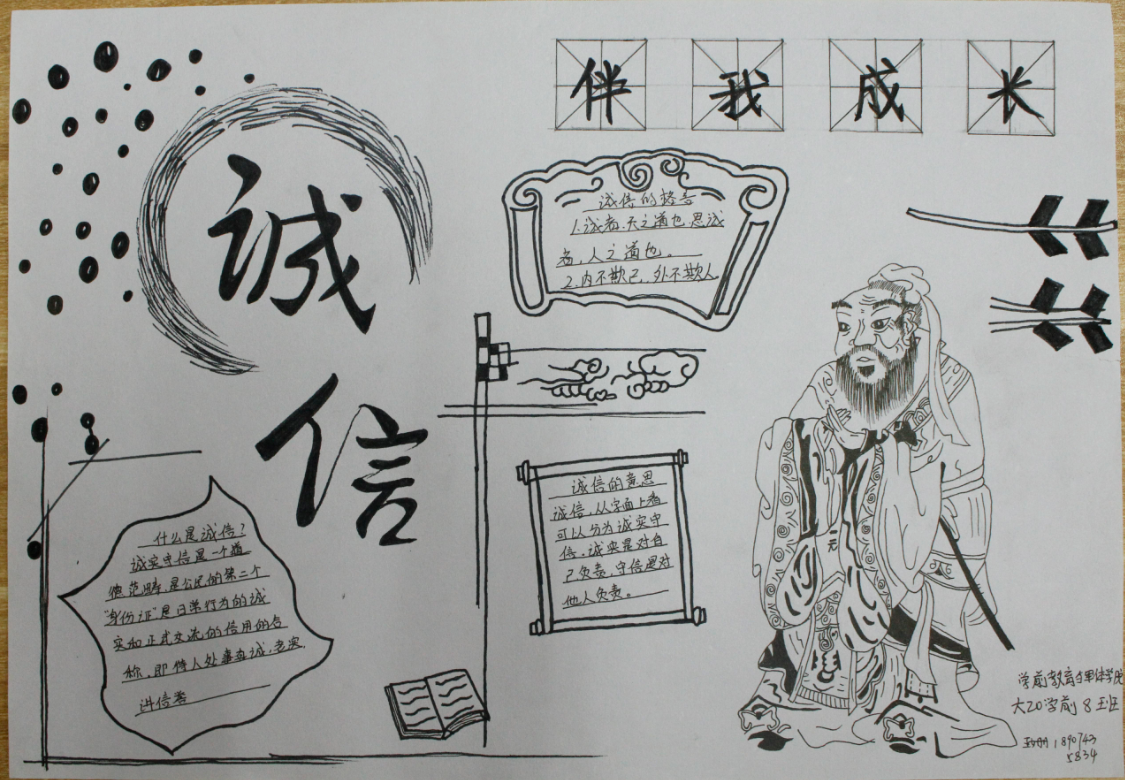 伴我成长
诚
信
诚信的格言
1.诚者.天之道也,思诚
者,人之道也。
2.内不欺己,外不欺人
诚信的意思
诚信,从字面上看
可以分为诚实守
信,诚实是对自
己负责,守信是对
他人负责。
什么是诚信?
诚实守信是一个道
德范畴,是公民的第二个
"身份证"是日常行为的诚
实和正式交流的信用的合
称,即待人处事真诚、老实、
讲信誉
学前教育
大20学前8班
1890743
5834